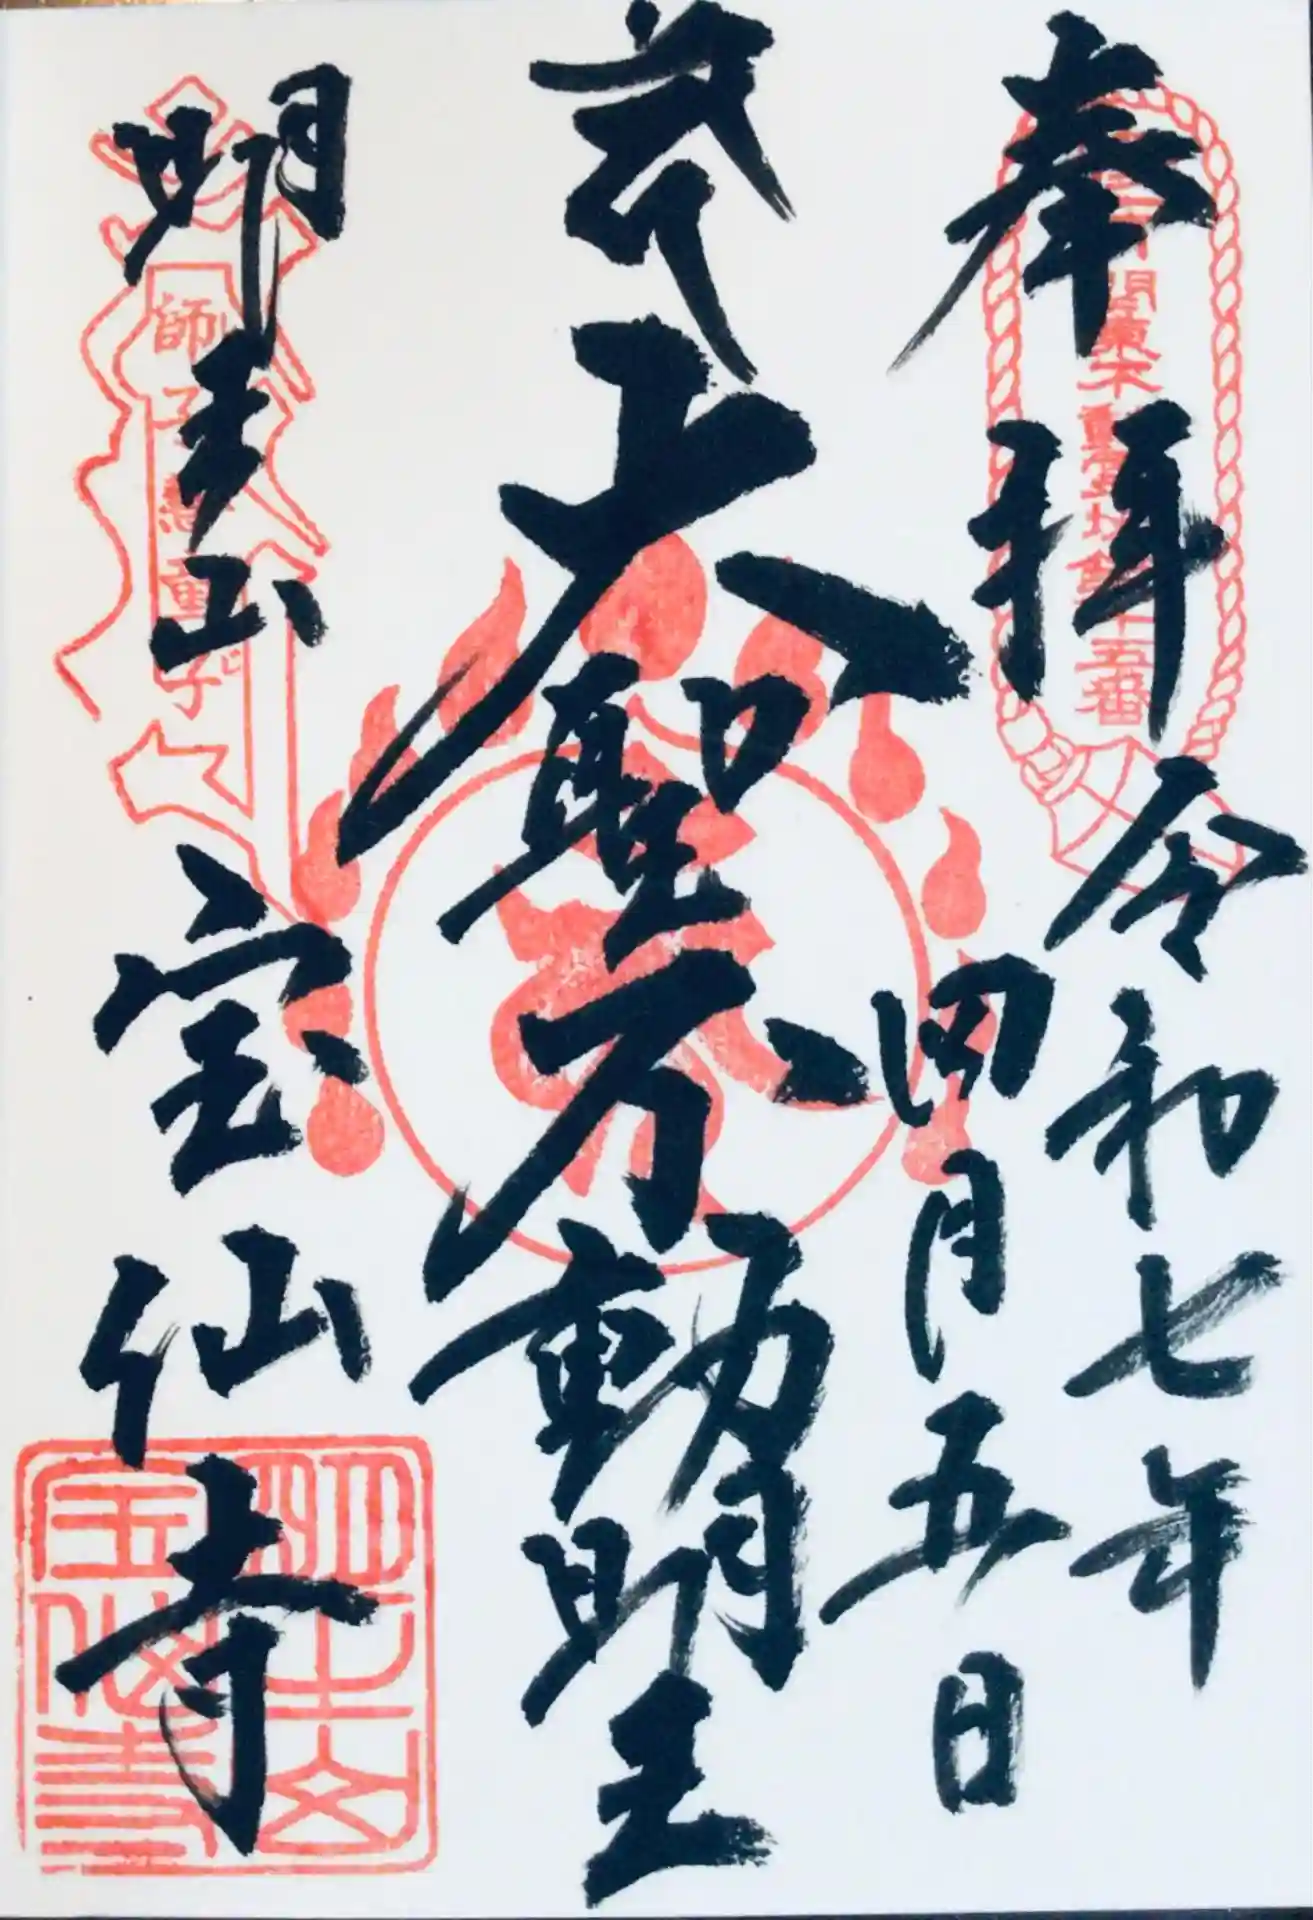 奉拝 令和七年
四月五日
大聖不動明王
明王山
宝仙寺
関東不動霊場第十五番
師子慧童子
明王山
宝仙寺